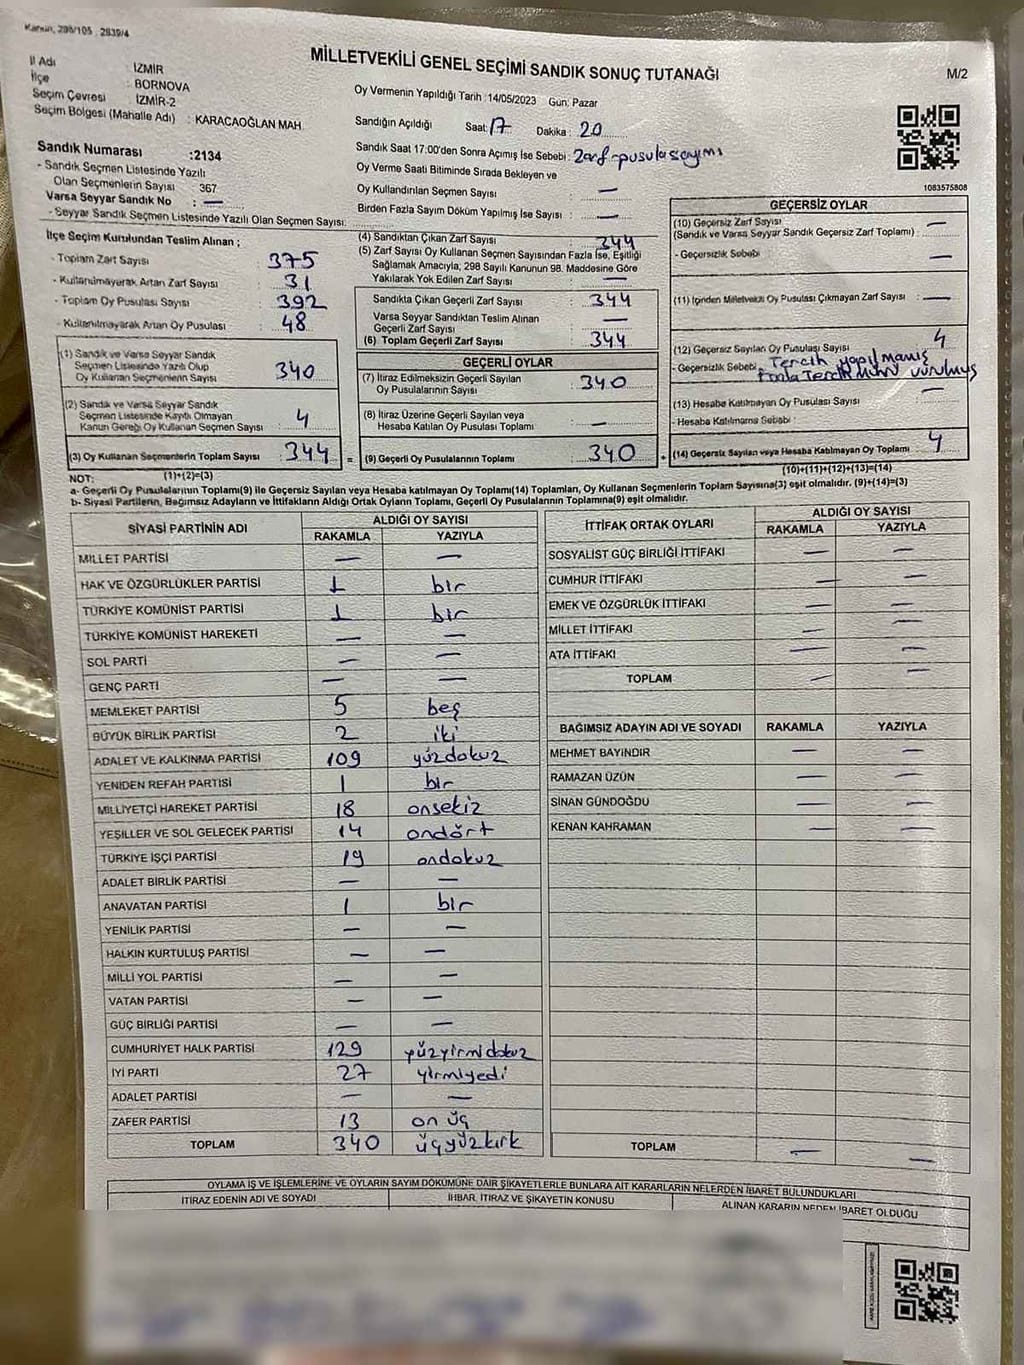 Kanun, 298/105 , 2839/4
MİLLETVEKİLİ GENEL SEÇİMİ SANDIK SONUÇ TUTANAĞI
M/2
İl Adı : İZMİR
İlçe : BORNOVA
Seçim Çevresi : İZMİR-2
Seçim Bölgesi (Mahalle Adı) : KARACAOĞLAN MAH.
Sandık Numarası :2134
- Sandık Seçmen Listesinde Yazılı
Olan Seçmenlerin Sayısı 367
Varsa Seyyar Sandık No : —
- Seyyar Sandık Seçmen Listesinde Yazılı Olan Seçmen Sayısı:
İlçe Seçim Kurulundan Teslim Alınan ;
- Toplam Zarf Sayısı : 375
- Kullanılmayarak Artan Zarf Sayısı : 31
- Toplam Oy Pusulası Sayısı : 392
- Kullanılmayarak Artan Oy Pusulası : 48
(1) Sandık ve Varsa Seyyar Sandık
Seçmen Listesinde Yazılı Olup
Oy Kullanan Seçmenlerin Sayısı : 340
(2) Sandık ve Varsa Seyyar Sandık
Seçmen Listesinde Kayıtlı Olmayan
Kanun Gereği Oy Kullanan Seçmen Sayısı : 4
(3) Oy Kullanan Seçmenlerin Toplam Sayısı : 344 =
(1)+(2)=(3)
Oy Vermenin Yapıldığı Tarih :14/05/2023 Gün: Pazar
Sandığın Açıldığı Saat: 17 Dakika : 20
Sandık Saat 17:00'den Sonra Açımış İse Sebebi : Zarf-pusula sayımı
Oy Verme Saati Bitiminde Sırada Bekleyen ve
Oy Kullandırılan Seçmen Sayısı : —
Birden Fazla Sayım Döküm Yapılmış İse Sayısı : —
(4) Sandıktan Çıkan Zarf Sayısı : 344
(5) Zarf Sayısı Oy Kullanan Seçmen Sayısından Fazla İse, Eşitliği
Sağlamak Amacıyla, 298 Sayılı Kanunun 98. Maddesine Göre
Yakılarak Yok Edilen Zarf Sayısı : —
Sandıkta Çıkan Geçerli Zarf Sayısı : 344
Varsa Seyyar Sandıktan Teslim Alınan
Geçerli Zarf Sayısı : —
(6) Toplam Geçerli Zarf Sayısı : 344
GEÇERLİ OYLAR
(7) İtiraz Edilmeksizin Geçerli Sayılan
Oy Pusulalarının Sayısı : 340
(8) İtiraz Üzerine Geçerli Sayılan veya
Hesaba Katılan Oy Pusulası Toplamı : —
(9) Geçerli Oy Pusulalarının Toplamı : 340 +
1083575808
GEÇERSİZ OYLAR
(10) Geçersiz Zarf Sayısı : —
(Sandık ve Varsa Seyyar Sandık Geçersiz Zarf Toplamı)
- Geçersizlik Sebebi : —
(11) İçinden Milletvekili Oy Pusulası Çıkmayan Zarf Sayısı : —
(12) Geçersiz Sayılan Oy Pusulası Sayısı : 4
- Geçersizlik Sebebi : Tercih yapılmamış
Fazla Tercih mührü vurulmuş
(13) Hesaba Katılmayan Oy Pusulası Sayısı : —
- Hesaba Katılmama Sebebi :
(14) Geçersiz Sayılan veya Hesaba Katılmayan Oy Toplamı : 4
(10)+(11)+(12)+(13)=(14)
NOT:
a- Geçerli Oy Pusulalarının Toplamı(9) ile Geçersiz Sayılan veya Hesaba katılmayan Oy Toplamı(14) Toplamları, Oy Kullanan Seçmenlerin Toplam Sayısına(3) eşit olmalıdır. (9)+(14)=(3)
b- Siyasi Partilerin, Bağımsız Adayların ve İttifakların Aldığı Ortak Oyların Toplamı, Geçerli Oy Pusulalarının Toplamına(9) eşit olmalıdır.
SİYASİ PARTİNİN ADI ALDIĞI OY SAYISI
RAKAMLA YAZIYLA
MİLLET PARTİSİ — —
HAK VE ÖZGÜRLÜKLER PARTİSİ 1 bir
TÜRKİYE KOMÜNİST PARTİSİ 1 bir
TÜRKİYE KOMÜNİST HAREKETİ — —
SOL PARTİ — —
GENÇ PARTİ — —
MEMLEKET PARTİSİ 5 beş
BÜYÜK BİRLİK PARTİSİ 2 iki
ADALET VE KALKINMA PARTİSİ 109 yüzdokuz
YENİDEN REFAH PARTİSİ 1 bir
MİLLİYETÇİ HAREKET PARTİSİ 18 onsekiz
YEŞİLLER VE SOL GELECEK PARTİSİ 14 ondört
TÜRKİYE İŞÇİ PARTİSİ 19 ondokuz
ADALET BİRLİK PARTİSİ — —
ANAVATAN PARTİSİ 1 bir
YENİLİK PARTİSİ — —
HALKIN KURTULUŞ PARTİSİ — —
MİLLİ YOL PARTİSİ — —
VATAN PARTİSİ — —
GÜÇ BİRLİĞİ PARTİSİ — —
CUMHURİYET HALK PARTİSİ 129 yüzyirmidokuz
İYİ PARTİ 27 yirmiyedi
ADALET PARTİSİ — —
ZAFER PARTİSİ 13 on üç
TOPLAM 340 üçyüzkırk
İTTİFAK ORTAK OYLARI ALDIĞI OY SAYISI
RAKAMLA YAZIYLA
SOSYALİST GÜÇ BİRLİĞİ İTTİFAKI — —
CUMHUR İTTİFAKI — —
EMEK VE ÖZGÜRLÜK İTTİFAKI — —
MİLLET İTTİFAKI — —
ATA İTTİFAKI — —
TOPLAM — —
BAĞIMSIZ ADAYIN ADI VE SOYADI RAKAMLA YAZIYLA
MEHMET BAYINDIR — —
RAMAZAN ÜZÜN — —
SİNAN GÜNDOĞDU — —
KENAN KAHRAMAN — —
TOPLAM — —
OYLAMA İŞ VE İŞLEMLERİNE VE OYLARIN SAYIM DÖKÜMÜNE DAİR ŞİKAYETLERLE BUNLARA AİT KARARLARIN NELERDEN İBARET BULUNDUKLARI
İTİRAZ EDENİN ADI VE SOYADI İHBAR, İTİRAZ VE ŞİKAYETİN KONUSU ALINAN KARARIN NEDEN İBARET OLDUĞU